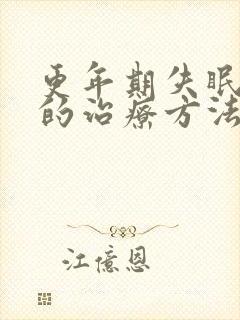 更年期失眠
的治疗方法
江億恩